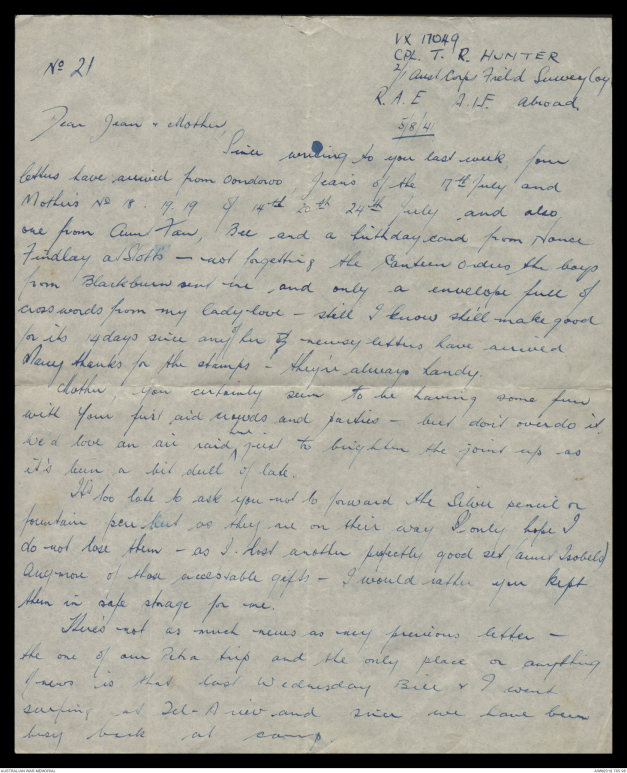 VX 17049
CPL. T. R. HUNTER
No 21
2/1 Aust Corps Field Survey Coy
R. A. E A.I.F. abroad
5/8/41
Dear Jean & Mother
Since writing to you last week four
letters have arrived from Oondooroo, Jean's of the 17th July and
Mother's No 18. 19. 19 of 14th 20th 24th July and also
one from Aunt Fan, Bee and a birthday card from
Findlay a Slotts - not forgetting the Canteen Orders the boys
from Blackburn sent me and only a envelope full of
crosswords from my lady-love - still I know she'll make good
for its 14 days since any of her newsy letters have arrived
Many thanks for the stamps - they're always handy.
Mother, you certainly seem to be having some fun
with your first aid crowds and parties - but don't overdo it.
We'd love an air raid here just to brighten the joint up as
it's been a bit dull of late.
It's too late to ask you not to forward the silver pencil or
fountain pen but as they are on their way I only hope I
do not lose them - as I lost another perfectly good set (Aunt Isobel's)
Anymore of those valuable gifts - I would rather you kept
them in safe storage for me.
There's not as much news as my previous letter -
the one of our Petra trip and the only place or anything
of news is that last Wednesday Bill & I went
surfing at Tel-Aviv and since we have been
busy back at camp.
AUSTRALIAN WAR MEMORIAL